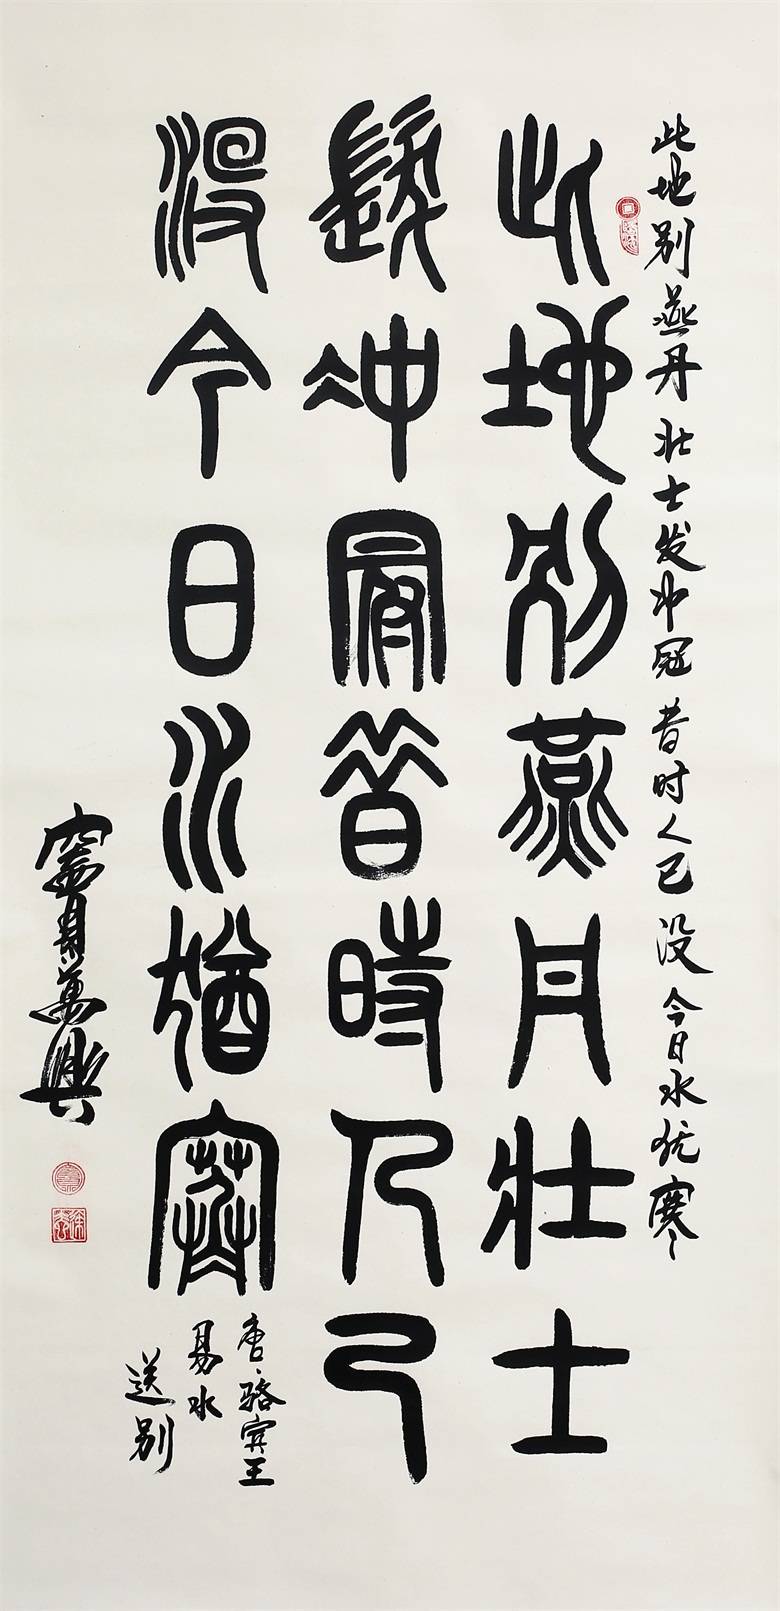 此地别燕丹 壮士发冲冠 昔时人已没 今日水犹寒
此地别燕丹壮士
髮沖冠昔時人已
没今日水猶寒
唐、骆宾王
易水
送别
萬興